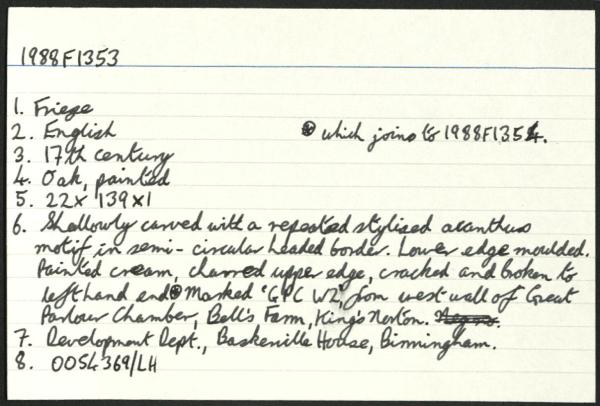 1988F1353
1. Frieze
2. English
⊛ which joins to 1988F1354.
3. 17th century
4. Oak, painted
5. 22 x 139 x 1
6. Shallowly carved with a repeated stylised acanthus
motif in semi-circular headed border. Lower edge moulded.
Painted cream, charred upper edge, cracked and broken to
left hand end ⊛ Marked "GPC W2", from west wall of Great
Parlour Chamber, Bell's Farm, King's Norton.
7. Development Dept., Baskerville House, Birmingham.
8. OOS4369/LH